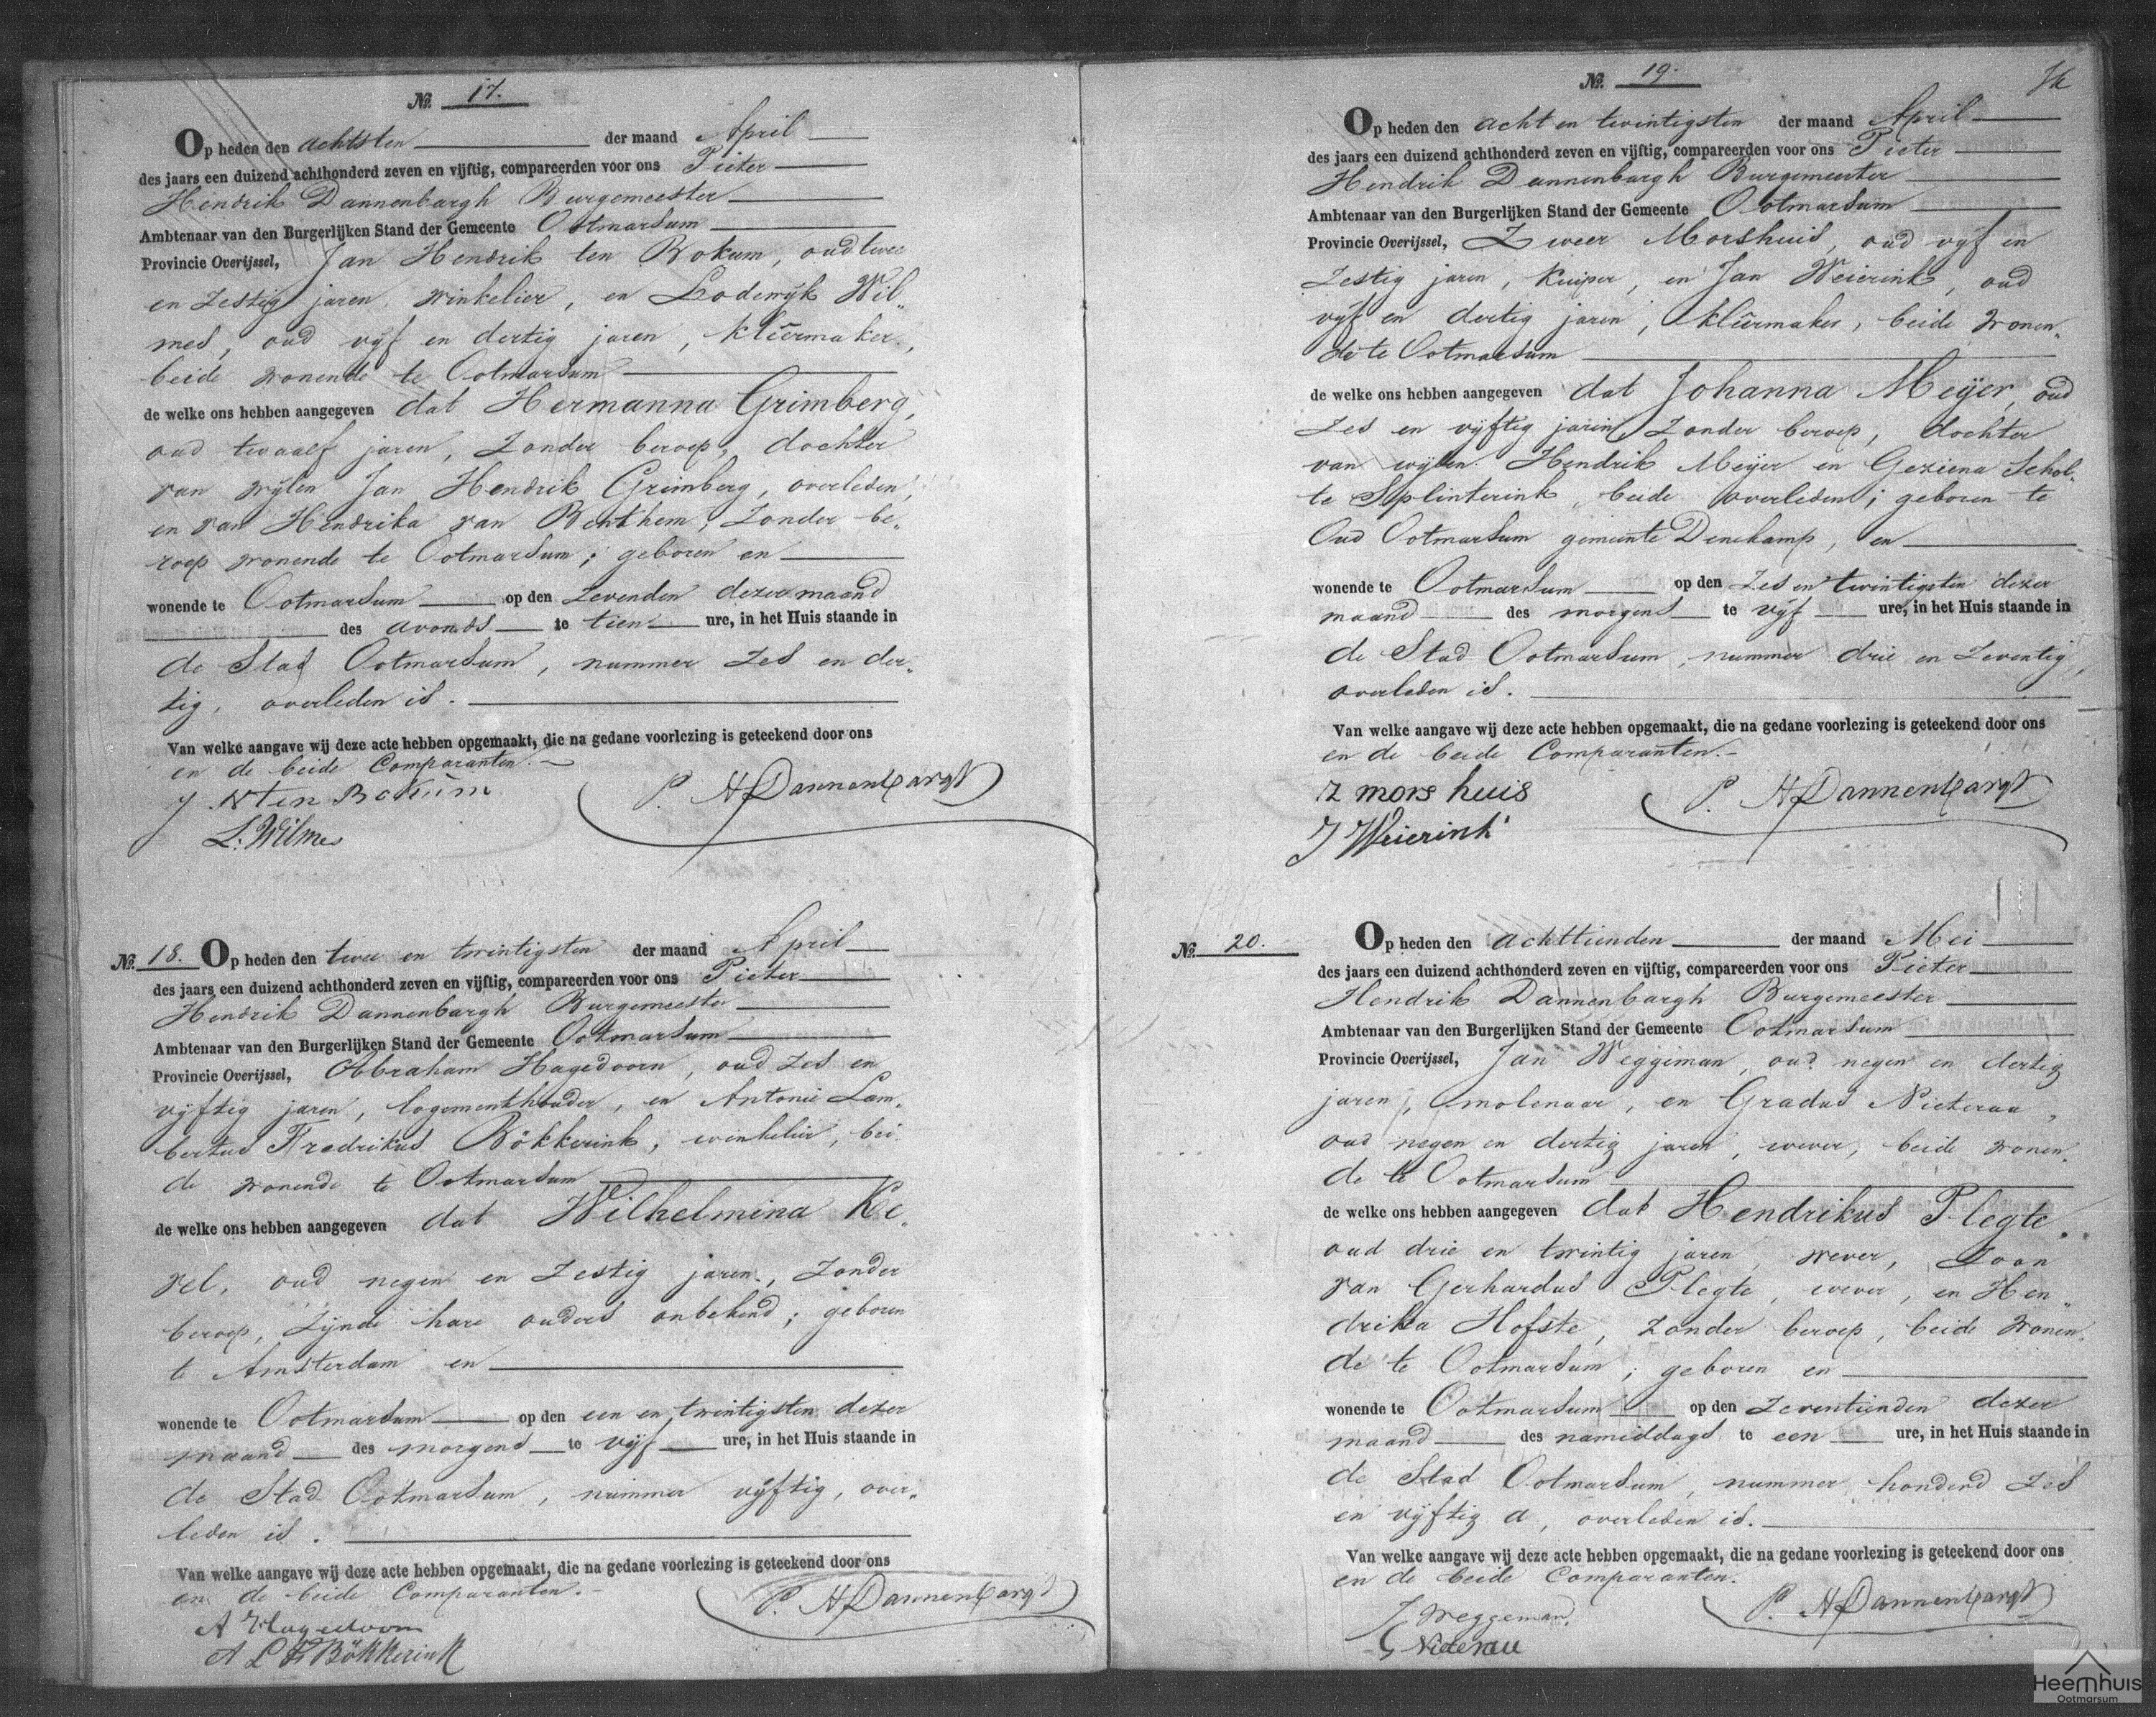 No. 17.
Op heden den achtsten der maand April
des jaars een duizend achthonderd zeven en vijftig, compareerden voor ons Pieter
Hendrik Dannenbargh Burgemeester
Ambtenaar van den Burgerlijken Stand der Gemeente Ootmarsum
Provincie Overijssel, Jan Hendrik ten Bokum, oud twee
en zestig jaren, winkelier, en Lodewijk Wil„
mes, oud vijf en dertig jaren, kleêrmaker,
beide wonende te Ootmarsum
de welke ons hebben aangegeven dat Hermanna Grimberg,
oud twaalf jaren, zonder beroep, dochter
van wijlen Jan Hendrik Grimberg, overleden,
en van Hendrika van Benthem, zonder be„
roep wonende te Ootmarsum; geboren en
wonende te Ootmarsum op den zevenden dezer maand
des avonds te tien ure, in het Huis staande in
de Stad Ootmarsum, nummer zes en der„
tig, overleden is.
Van welke aangave wij deze acte hebben opgemaakt, die na gedane voorlezing is geteekend door ons
en de beide Comparanten.
J. H ten Bokum
P. H Dannenbargh
L. Wilmes
No. 18. Op heden den twee en twintigsten der maand April
des jaars een duizend achthonderd zeven en vijftig, compareerden voor ons Pieter
Hendrik Dannenbargh Burgemeester
Ambtenaar van den Burgerlijken Stand der Gemeente Ootmarsum
Provincie Overijssel, Abraham Hagedoorn, oud zes en
vijftig jaren, logementhouder, en Antonie Lam„
bertus Fredrikus Bökkerink, winkelier, bei„
de wonende te Ootmarsum
de welke ons hebben aangegeven dat Wilhelmina Ke„
vel, oud negen en zestig jaren, zonder
beroep, zijnde hare ouders onbekend; geboren
te Amsterdam en
wonende te Ootmarsum op den een en twintigsten dezer
maand des morgens te vijf ure, in het Huis staande in
de Stad Ootmarsum, nummer vijftig, over„
leden is.
Van welke aangave wij deze acte hebben opgemaakt, die na gedane voorlezing is geteekend door ons
en de beide Comparanten.
P. H Dannenbargh
A Hagedoorn
A L F Bökkerink
No. 19.
Op heden den acht en twintigsten der maand April
des jaars een duizend achthonderd zeven en vijftig, compareerden voor ons Pieter
Hendrik Dannenbargh Burgemeester
Ambtenaar van den Burgerlijken Stand der Gemeente Ootmarsum
Provincie Overijssel, Zweer Morshuis, oud vijf en
zestig jaren, kuiper, en Jan Weierink, oud
vijf en dertig jaren, kleêrmaker, beide wonen„
de te Ootmarsum
de welke ons hebben aangegeven dat Johanna Meijer, oud
zes en vijftig jaren, zonder beroep, dochter
van wijlen Hendrik Meijer en Geziena Schol„
te Splinterink, beide overleden; geboren te
Oud Ootmarsum gemeente Denekamp, en
wonende te Ootmarsum op den zes en twintigsten dezer
maand des morgens te vijf ure, in het Huis staande in
de Stad Ootmarsum, nummer drie en zeventig,
overleden is.
Van welke aangave wij deze acte hebben opgemaakt, die na gedane voorlezing is geteekend door ons
en de beide Comparanten.
Z morshuis
P. H Dannenbargh
J Weierink
No. 20. Op heden den achttienden der maand Mei
des jaars een duizend achthonderd zeven en vijftig, compareerden voor ons Pieter
Hendrik Dannenbargh Burgemeester
Ambtenaar van den Burgerlijken Stand der Gemeente Ootmarsum
Provincie Overijssel, Jan Weggeman, oud negen en dertig
jaren, molenaar, en Gradus Nieteraa,
oud negen en dertig jaren, wever, beide wonen„
de te Ootmarsum
de welke ons hebben aangegeven dat Hendrikus Plegte,
oud drie en twintig jaren, wever, zoon
van Gerhardus Plegte, wever, en Hen„
drika Hofste, zonder beroep, beide wonen„
de te Ootmarsum; geboren en
wonende te Ootmarsum op den zeventienden dezer
maand des namiddags te een ure, in het Huis staande in
de Stad Ootmarsum, nummer honderd zes
en vijftig a, overleden is.
Van welke aangave wij deze acte hebben opgemaakt, die na gedane voorlezing is geteekend door ons
en de beide Comparanten.
P. H Dannenbargh
J Weggeman
G
Heemhuis
Ootmarsum